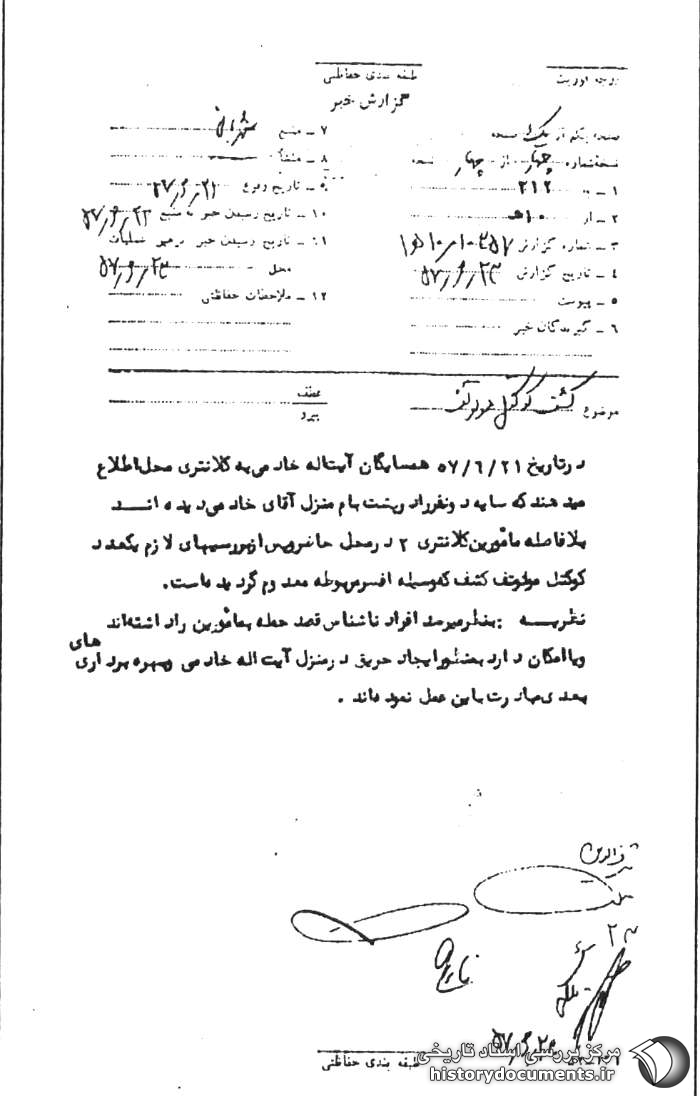 درجه فوریت
طبقه بندی حفاظتی
گزارش خبر
صفحه یکم از یک صفحه
نسخه شماره چهار از چهار نسخه
۱ - به ۳۱۲
۲ - از ۱۰ه
۳ - شماره گزارش
۴ - تاریخ گزارش ۵۷/۶/۲۳
۵ - پیوست
۶ - گیرندگان خبر
۷ - منبع شهربانی
۸ - منشأ
۹ - تاریخ وقوع ۵۷/۶/۲۱
۱۰ - تاریخ رسیدن خبر به منبع ۵۷/۶/۲۳
۱۱ - تاریخ رسیدن خبر برهبر عملیات
محل ۵۷/۶/۲۳
۱۲ - ملاحظات حفاظتی
موضوع کشف کوکتل مولوتف
عطف
پیرو
درتاریخ ۵۷/۶/۲۱ همسایگان آیتاله خادمی به کلانتری محل اطلاع
میدهند که سایه دونفر را در پشت بام منزل آقای خادمی دیده اند
بلافاصله مأمورین کلانتری ۲ در محل حاضر و پس از بررسیهای لازم یکعدد
کوکتل مولوتف کشف که وسیله افسر مربوطه معدوم گردیده است.
نظریه : بنظر میرسد افراد ناشناس قصد حمله به مأمورین را داشته اند
ویا امکان دارد بمنظور ایجاد حریق در منزل آیت اله خادمی و بهره برداری های
بعدی مبادرت باین عمل نموده اند .
۵۷/۶/۲۶
طبقه بندی حفاظتی
مرکز بررسی اسناد تاریخی
historydocuments.ir